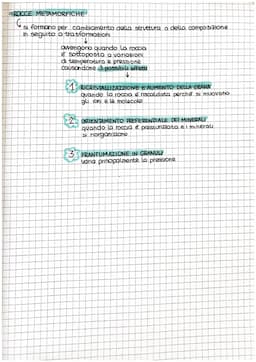 ROCCE METAMORFICHE
si formano per cambiamento della struttura o della composizione
in seguito a trasformazioni
avvengono quando la roccia
è sottoposta a variazioni
di temperatura e pressione
causandone 3 possibili effetti
1 RICRISTALLIZZAZIONE E AUMENTO DELLA GRANA
quando la roccia è riscaldata perché si muovono
gli ioni e le molecole
2 ORIENTAMENTO PREFERENZIALE DEI MINERALI
quando la roccia è pressurizzata e i minerali
si riorganizzano
3 FRANTUMAZIONE IN GRANULI
varia principalmente la pressione